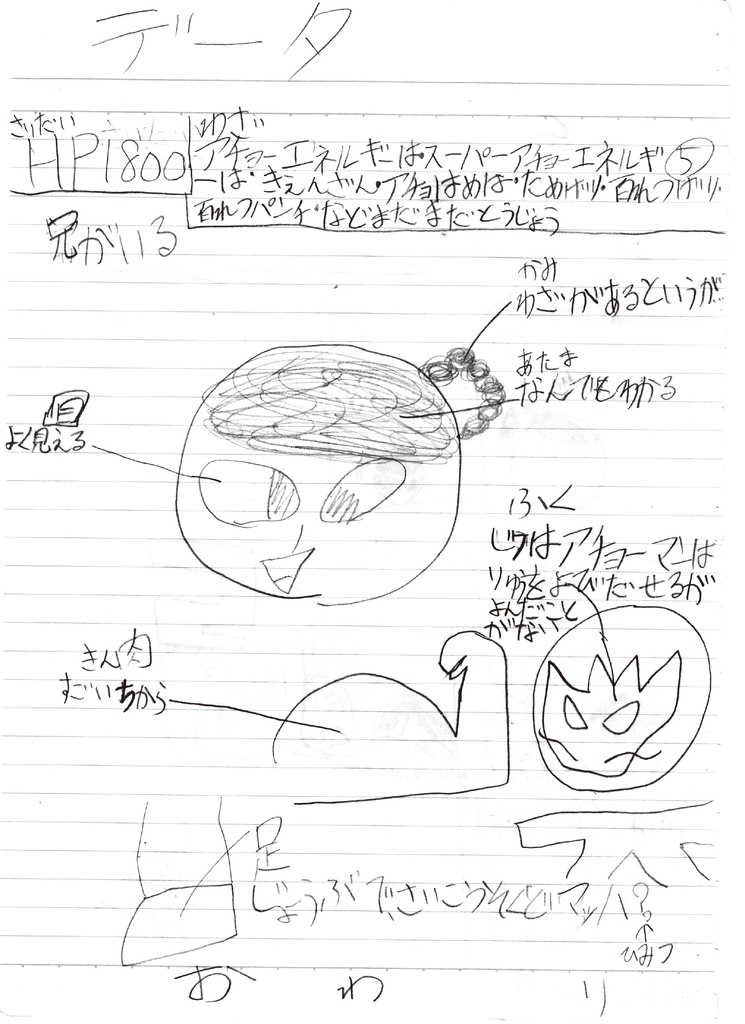 データ
さいだい
HP1800
わざ
アチョーエネルギーは・スーパーアチョーエネルギ⑤
ーは・きえんざん・アチョはめは・ためげり・百れつげり・
百れつパンチ・などまだまだとうじょう
兄がいる
かみ
わざがあるというが…
あたま
なんでもわかる
目
よく見える
ふく
じつはアチョーマンは
りゅうをよびだせるが
よんだこと
がない
きん肉
すごいちから
足
じょうぶでさいこうそくどマッハ?
↑
ひみつ
おわり